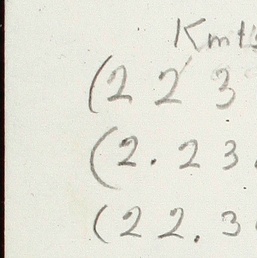 Kmt
(2 2 3
(2. 2 3.
(2 2. 3